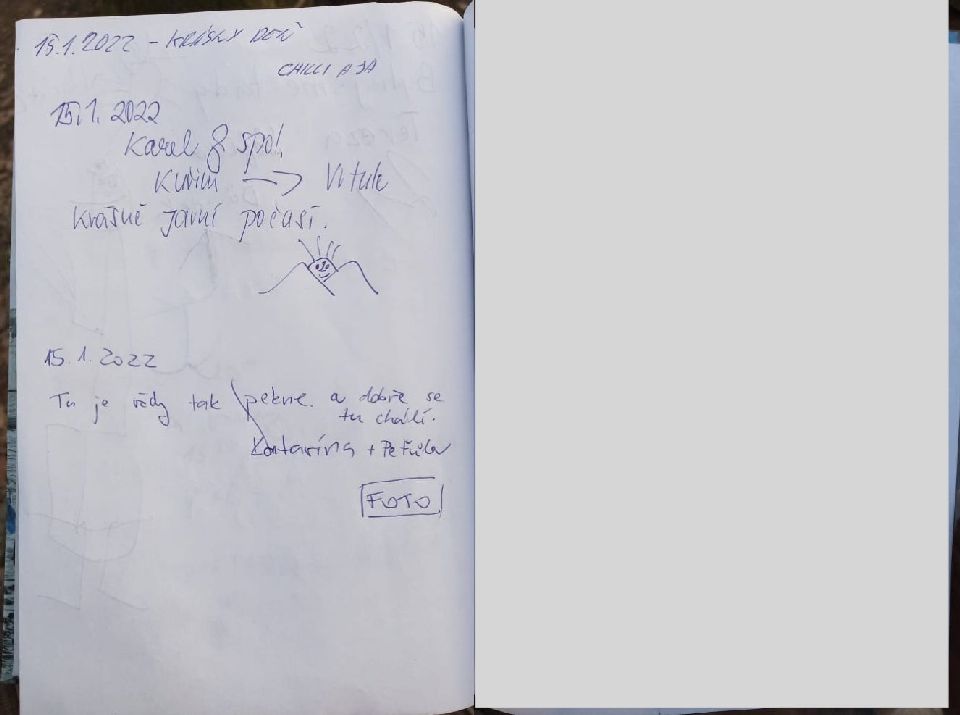 15.1.2022 - KRÁSKY DEŇ
CHILLI A JA
15.1.2022
Karel & spol.
Kuřim → Vítule
Krásné jarní počasí.
15.1.2022
Tu je vždy tak pekne a dobře se
tu chálí.
Katarína +
FOTO